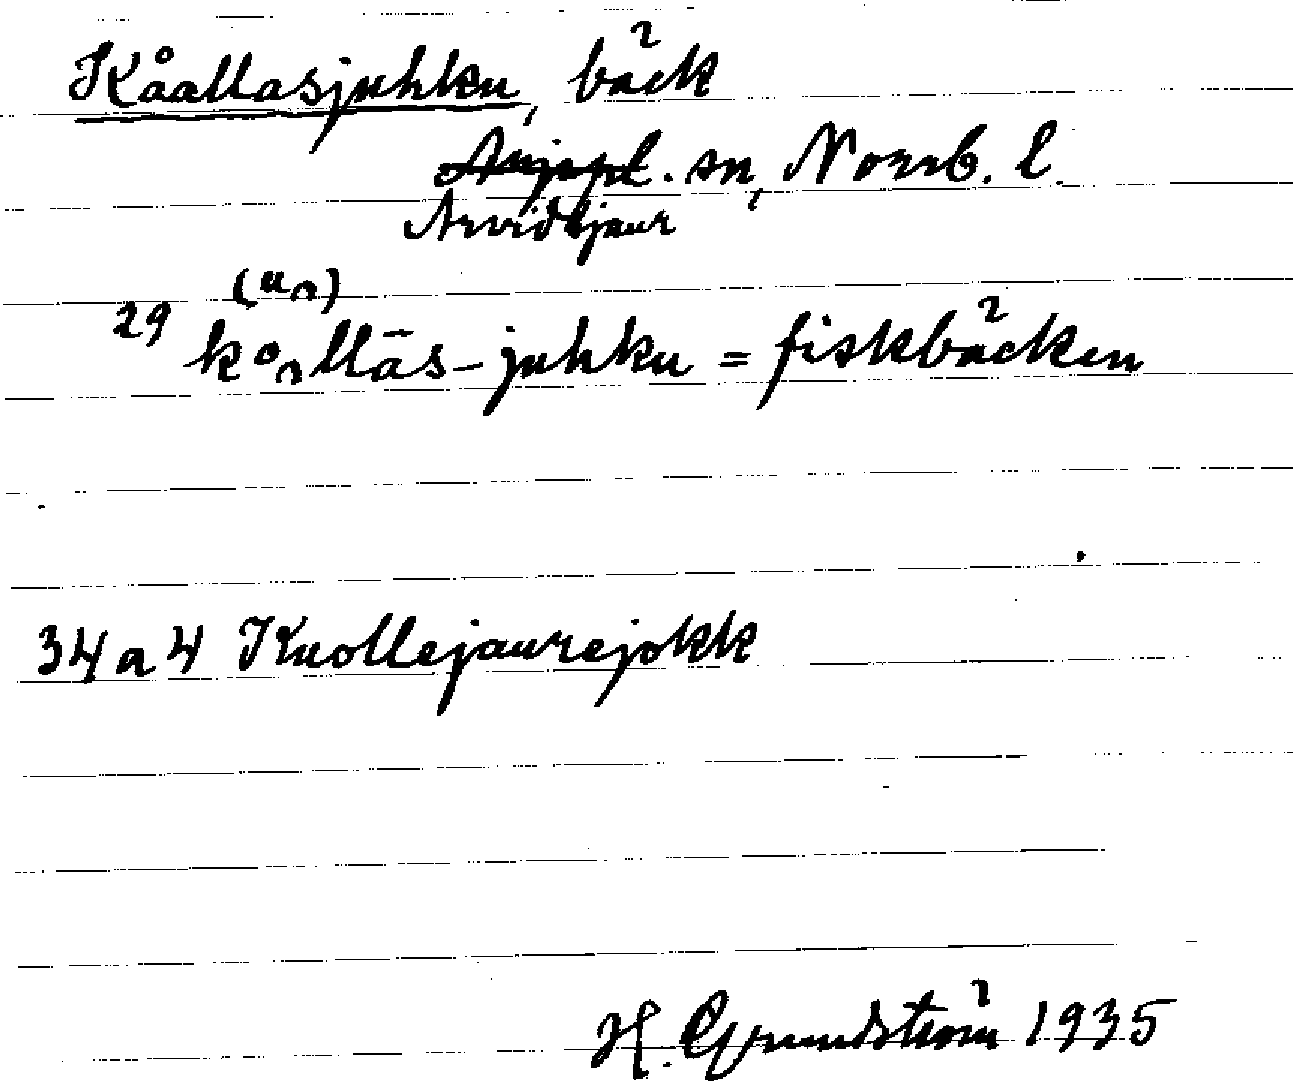 Kåallasjuhku, bäck
Arjepl. sn, Norrb. l.
Arvidsjaur
(u̯)
29 ko̯llās-juhku = fiskbäcken
34 a 4 Kuollejaurejokk
H. Grundström 1935